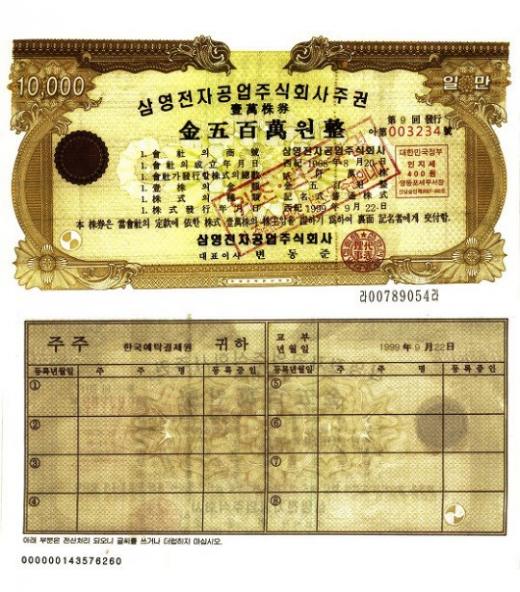 10,000
일만
삼영전자공업주식회사주권
壹萬株券
第 9 回 發行
金五百萬원整
아第003234號
1. 會社의 商號 삼영전자공업주식회사
1. 會社의 成立年月日 西紀 1968年 8月 20日
1. 會社가 發行할 株式의 總數
1. 壹株의 金額 金 五 百 원 整
1. 株式의 種類 記名式 普通株式
1. 株式發行年月日 西紀 1999年 9月 22日
대한민국정부
인지세
400원
영등포세무서장
本 株券은 當會社의 定款에 依한 株式 壹萬株의 株主임을 證하기 爲하여 裏面 記名者에게 交付함.
삼영전자공업주식회사
대표이사 변동준
라00789054라
주주 한국예탁결제원 귀하
교부년월일 1999年 9月22日
등록년월일 주주명 등록증인 등록년월일 주주명 등록증인
① ⑤
② ⑥
③ ⑦
④ ⑧
아래 부분은 전산처리 되오니 글씨를 쓰거나 더럽히지 마십시오.
000000143576260